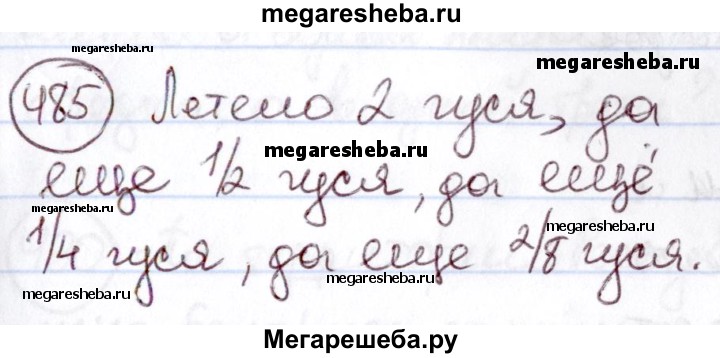 megaresheba.ru
megaresheba.ru
megaresheba.ru
485 Летело 2 гуся, да
megaresheba.ru
еще 1/2 гуся, да ещё
megaresheba.ru
1/4 гуся, да еще 2/8 гуся.
megaresheba.ru
megaresheba.ru
Мегарешеба.ру